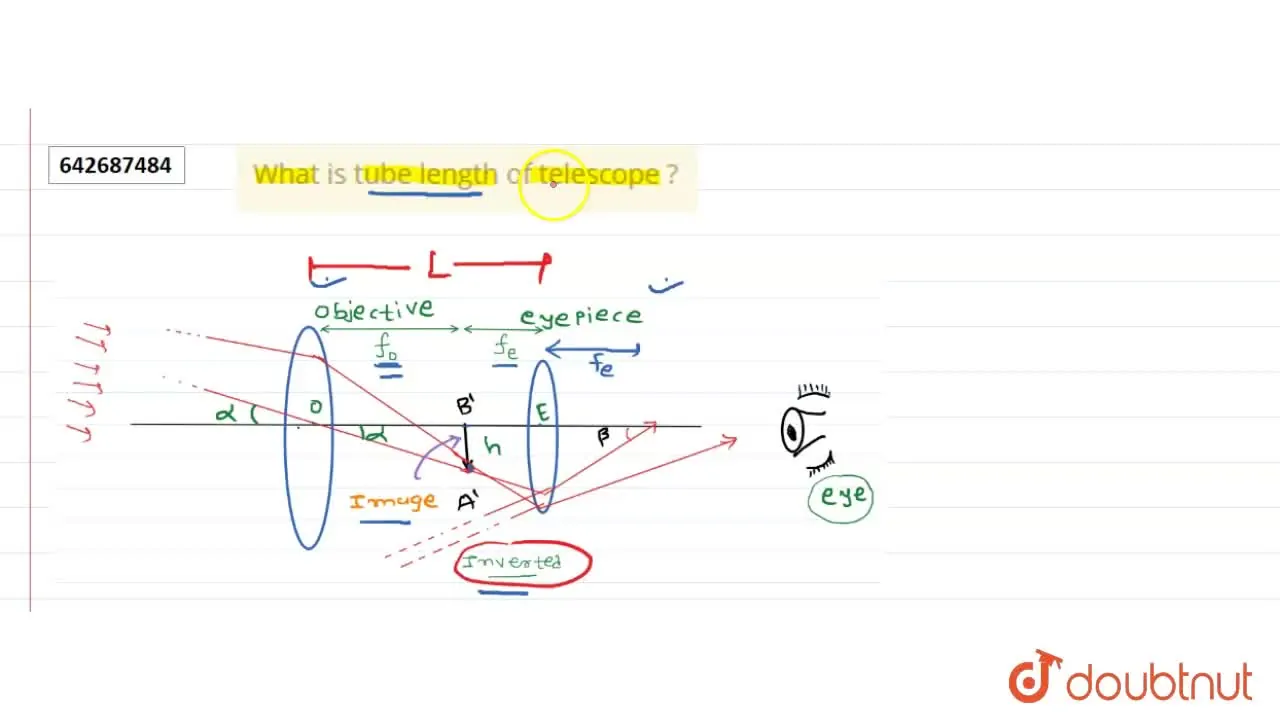 642687484
What is tube length of telescope ?
L
objective
eyepiece
f₀
fe
fe
α
O
α
B'
h
E
β
Image
A'
eye
Inverted
doubtnut